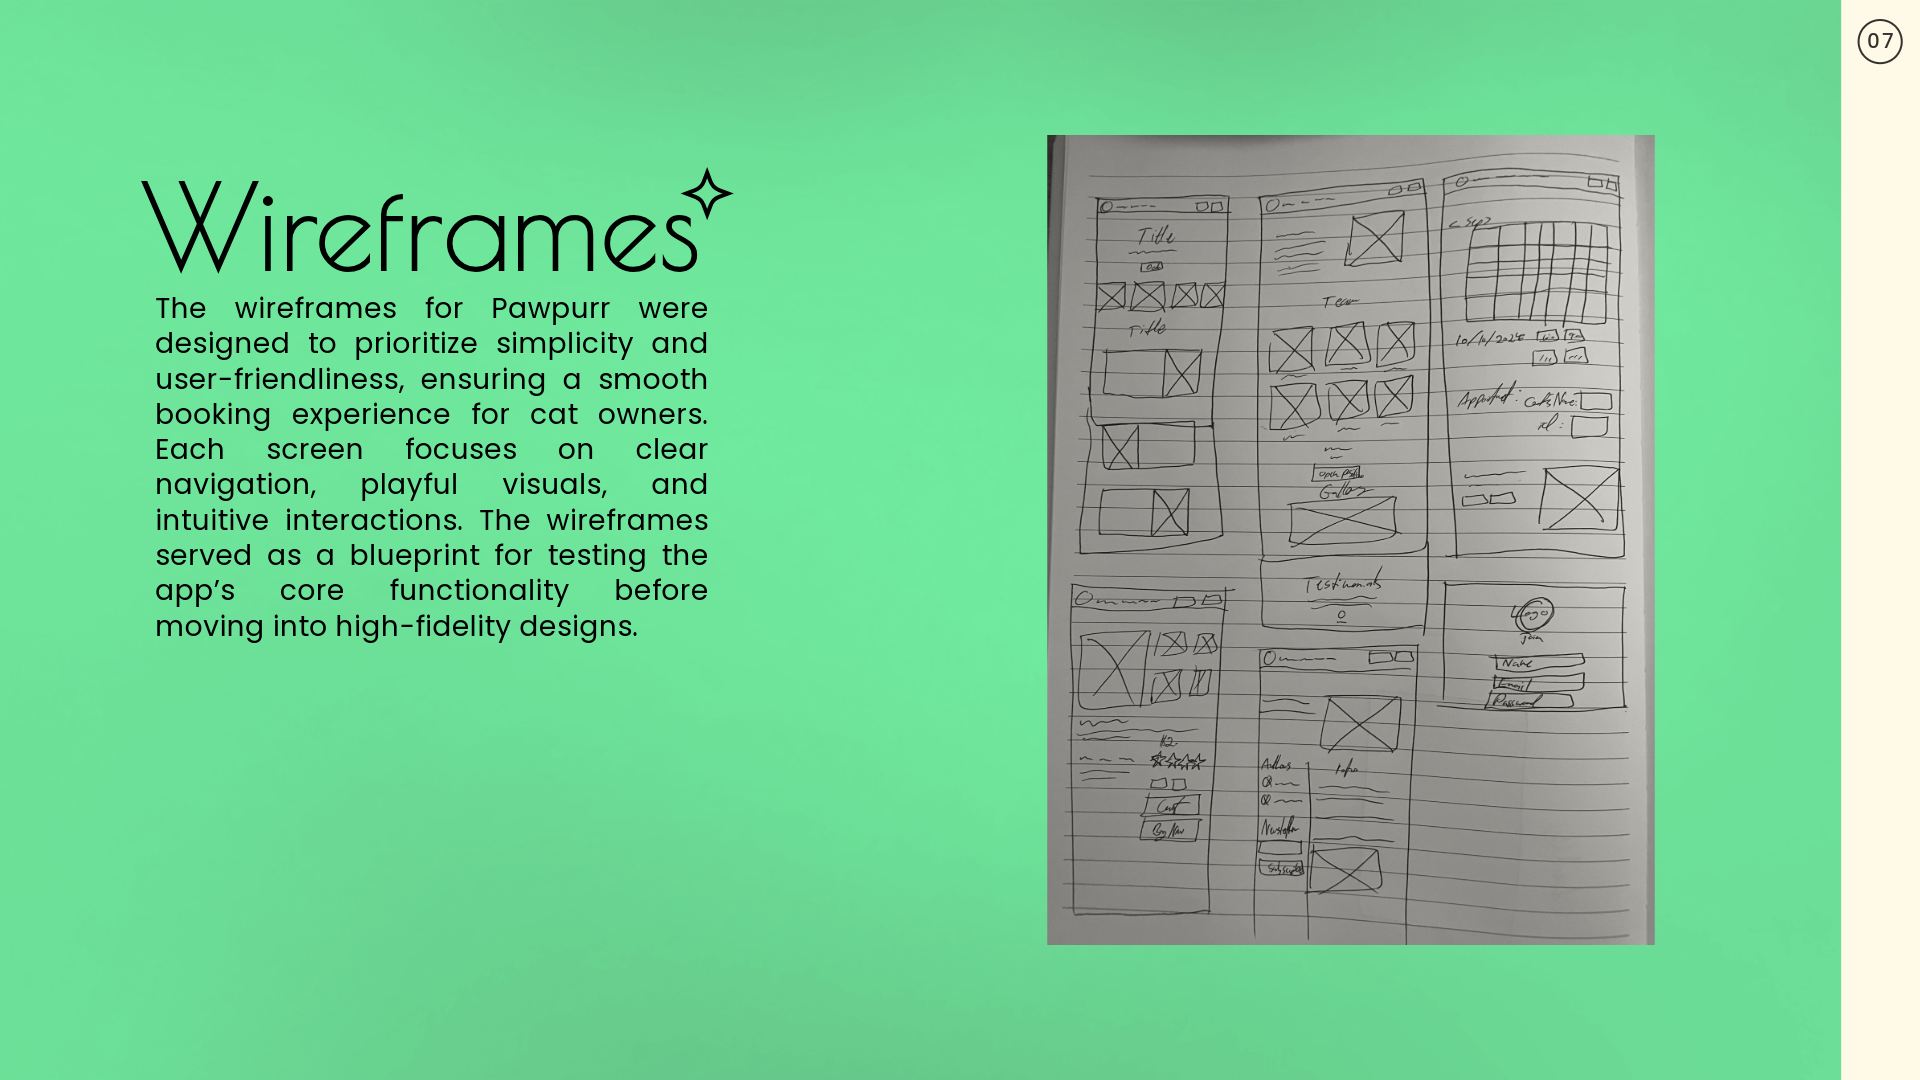 07
Wireframes
The wireframes for Pawpurr were
designed to prioritize simplicity and
user-friendliness, ensuring a smooth
booking experience for cat owners.
Each screen focuses on clear
navigation, playful visuals, and
intuitive interactions. The wireframes
served as a blueprint for testing the
app’s core functionality before
moving into high-fidelity designs.
Title
Title
Team
Gallery
Testimonials
< Sep
10/10/2024
Logo
Join
Name
Email
Password
Info